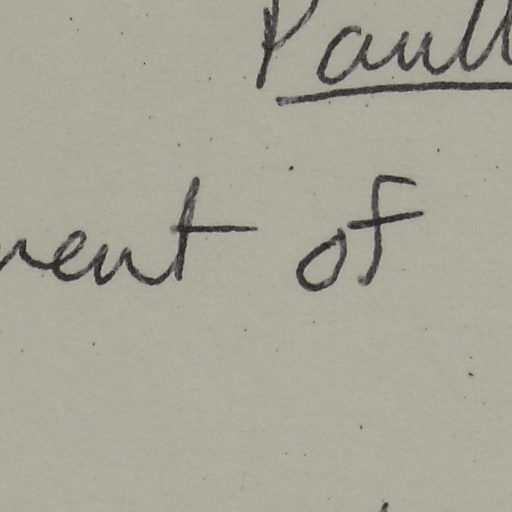 Paull
ment of